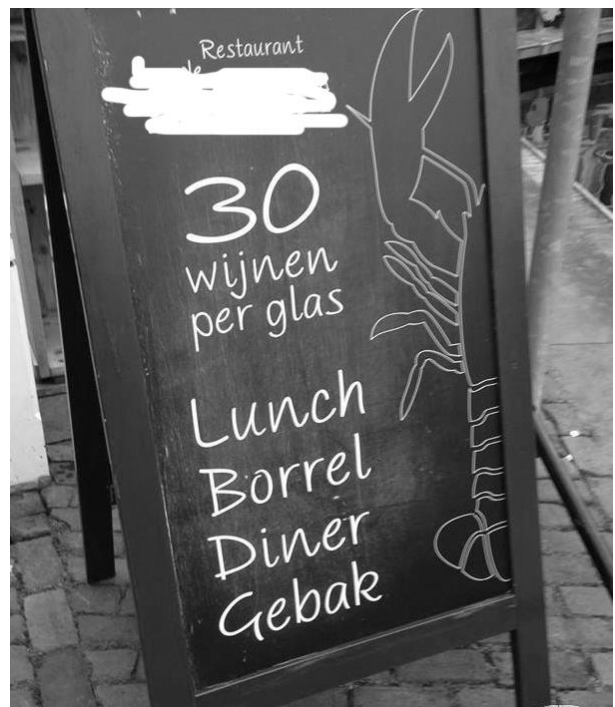 Restaurant
30
wijnen
per glas
Lunch
Borrel
Diner
Gebak